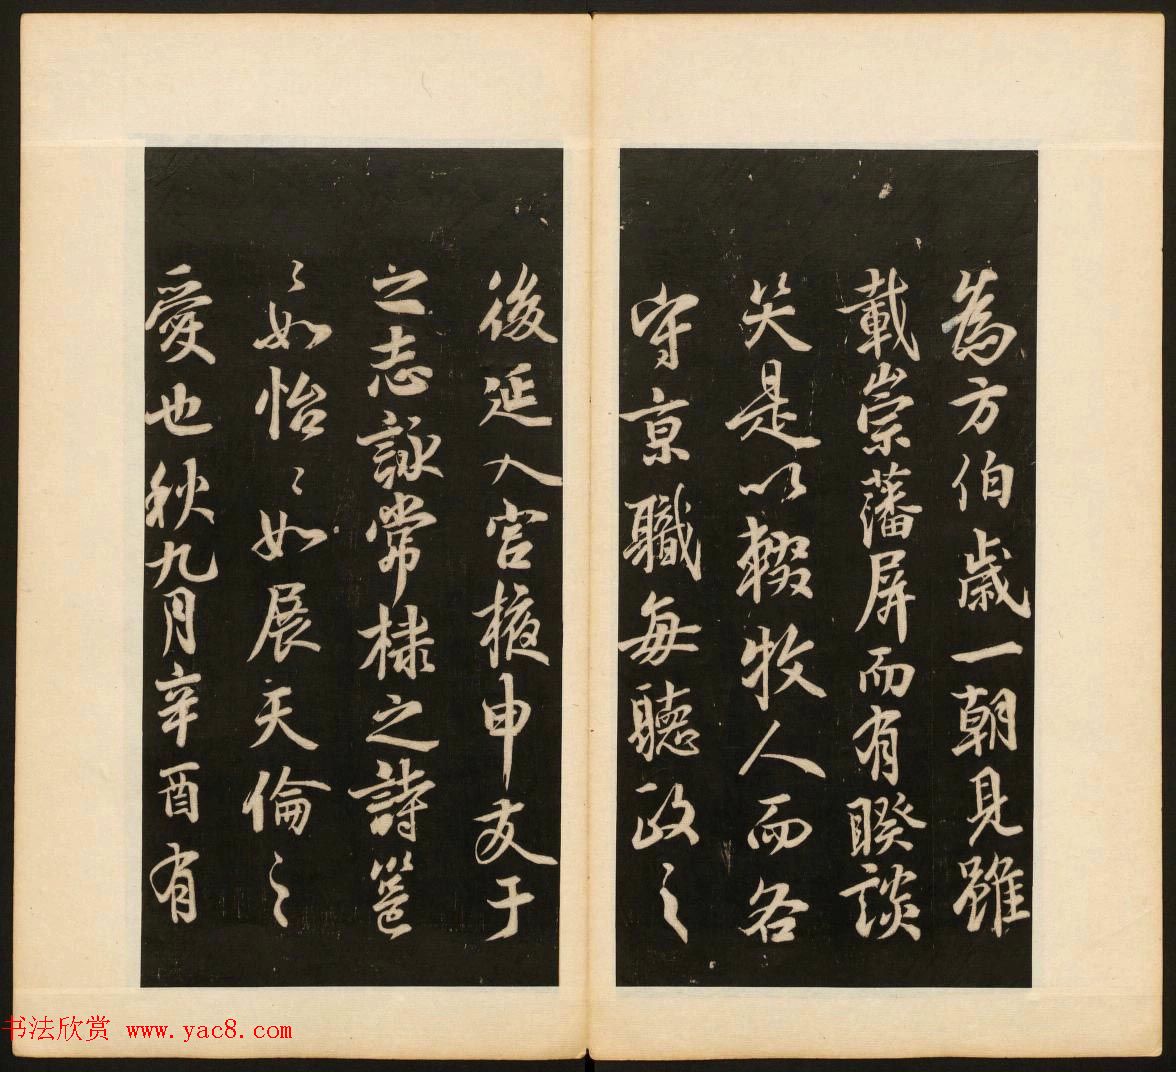 為方伯歲一朝見雖
載崇藩屏而有睽談
笑是以輟牧人而各
守京職每聽政之
後延入宮掖申友于
之志詠常棣之詩邕
〻如怡〻如展天倫之
愛也秋九月辛酉有
书法欣赏 www.yac8.com